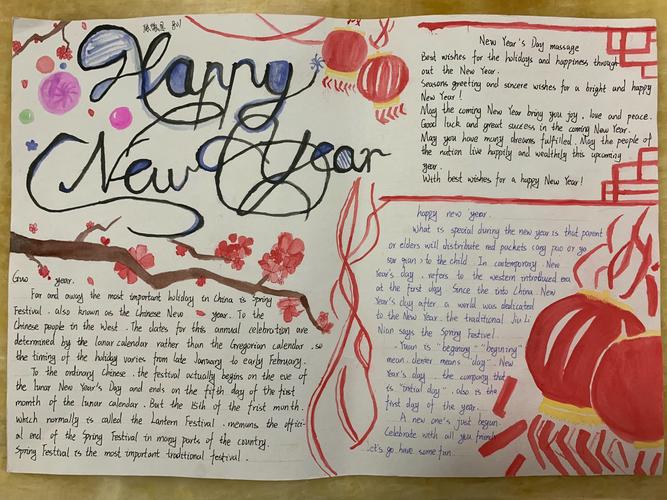 801
Happy
New Year
New Year's Day massage
Best wishes for the holidays and happiness through
out the New Year.
Seasons greeting and sincere wishes for a bright and happy
New Year!
May the coming New Year bring you joy, love and peace.
Good luck and great success in the coming New Year.
May you have many dreams fulfilled. May the people of
the nation live happily and wealthily this upcoming
year.
With best wishes for a happy New Year!
Guo year.
For and away the most important holiday in China is Spring
Festival, also known as the Chinese New year. To the
Chinese people in the West. The dates for this annual celebration are
determined by the lunar calendar rather than the Gregorian calendar, so
the timing of the holiday varies from late January to early February.
To the ordinary Chinese, the festival actually begins on the eve of
the lunar New Year's Day and ends on the fifth day of the first
month of the lunar calendar. But the 15th of the frist month.
which normally is called the Lantern Festival, menuns the offici-
al end of the Spring Festival in many parts of the country.
Spring Festival is the most important traditional festival.
happy new year.
What is special during the new year is that parent
or elders will distribute red packets
to the child. In contemporary New
Year's day, refers to the western introduced era
at the first day. Since the into China New
Year's day after a world was dedicated
to the New Year. the traditional
Nian says the Spring Festival.
Yuan is "begining" "beginning"
mean. denier means day". New
Year's day. the company that
is "initial day", also is the
first day of the year.
A new one's just begun.
Celebrate with all you friends
let's go have some fun.